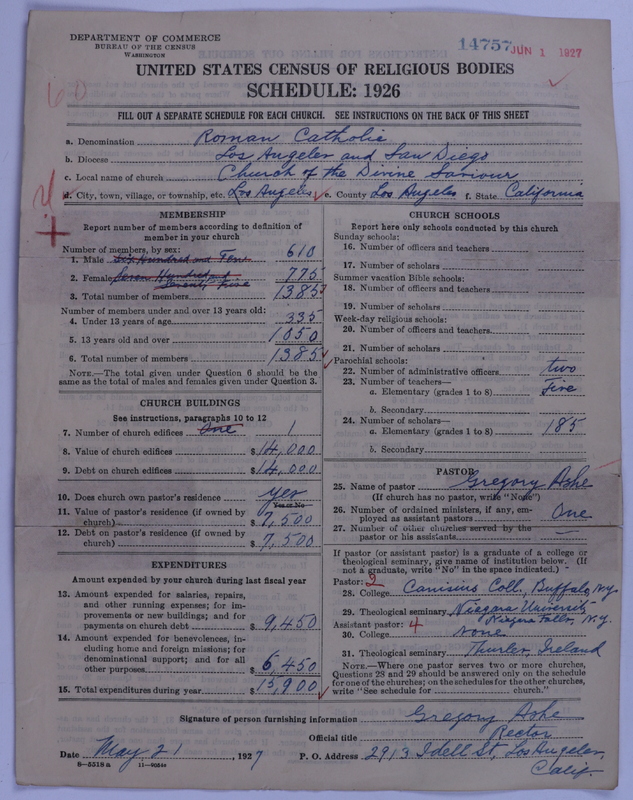 DEPARTMENT OF COMMERCE
BUREAU OF THE CENSUS
WASHINGTON
14757 JUN 1 1927
UNITED STATES CENSUS OF RELIGIOUS BODIES
SCHEDULE: 1926
FILL OUT A SEPARATE SCHEDULE FOR EACH CHURCH. SEE INSTRUCTIONS ON THE BACK OF THIS SHEET
a. Denomination Roman Catholic
b. Diocese Los Angeles and San Diego
c. Local name of church Church of the Divine Saviour
d. City, town, village, or township, etc. Los Angeles e. County Los Angeles f. State California
MEMBERSHIP
Report number of members according to definition of
member in your church
Number of members, by sex:
1. Male Six Hundred and Ten 610
2. Female Seven Hundred and Seventy Five 775
3. Total number of members 1385
Number of members under and over 13 years old:
4. Under 13 years of age 335
5. 13 years old and over 1050
6. Total number of members 1385
NOTE.—The total given under Question 6 should be the
same as the total of males and females given under Question 3.
CHURCH BUILDINGS
See instructions, paragraphs 10 to 12
7. Number of church edifices One 1
8. Value of church edifices $14,000
9. Debt on church edifices $14,000
10. Does church own pastor's residence yes
Yes or No
11. Value of pastor's residence (if owned by
church) $7,500
12. Debt on pastor's residence (if owned by
church) $7,500
EXPENDITURES
Amount expended by your church during last fiscal year
13. Amount expended for salaries, repairs,
and other running expenses; for im-
provements or new buildings; and for
payments on church debt $9,450
14. Amount expended for benevolences, in-
cluding home and foreign missions; for
denominational support; and for all
other purposes $6,450
15. Total expenditures during year $15,900
CHURCH SCHOOLS
Report here only schools conducted by this church
Sunday schools:
16. Number of officers and teachers
17. Number of scholars
Summer vacation Bible schools:
18. Number of officers and teachers
19. Number of scholars
Week-day religious schools:
20. Number of officers and teachers
21. Number of scholars
Parochial schools:
22. Number of administrative officers two
23. Number of teachers—
a. Elementary (grades 1 to 8) Five
b. Secondary
24. Number of scholars—
a. Elementary (grades 1 to 8) 185
b. Secondary
PASTOR
25. Name of pastor Gregory Ashe
(If church has no pastor, write "None")
26. Number of ordained ministers, if any, em-
ployed as assistant pastors One
27. Number of other churches served by the
pastor or his assistants —
If pastor (or assistant pastor) is a graduate of a college or
theological seminary, give name of institution below. (If
not a graduate, write "No" in the space indicated.)
Pastor: 2
28. College Canisius Coll., Buffalo, N.Y.
29. Theological seminary Niagara University
Niagara Falls, N.Y.
Assistant pastor: 4
30. College None
31. Theological seminary Thurles, Ireland
NOTE.—Where one pastor serves two or more churches,
Questions 28 and 29 should be answered only on the schedule
for one of the churches; on the schedules for the other churches,
write "See schedule for church."
Signature of person furnishing information Gregory Ashe
Official title Rector
Date May 21, 1927 P. O. Address 2913 Idell St, Los Angeles,
Calif.
8—5518a